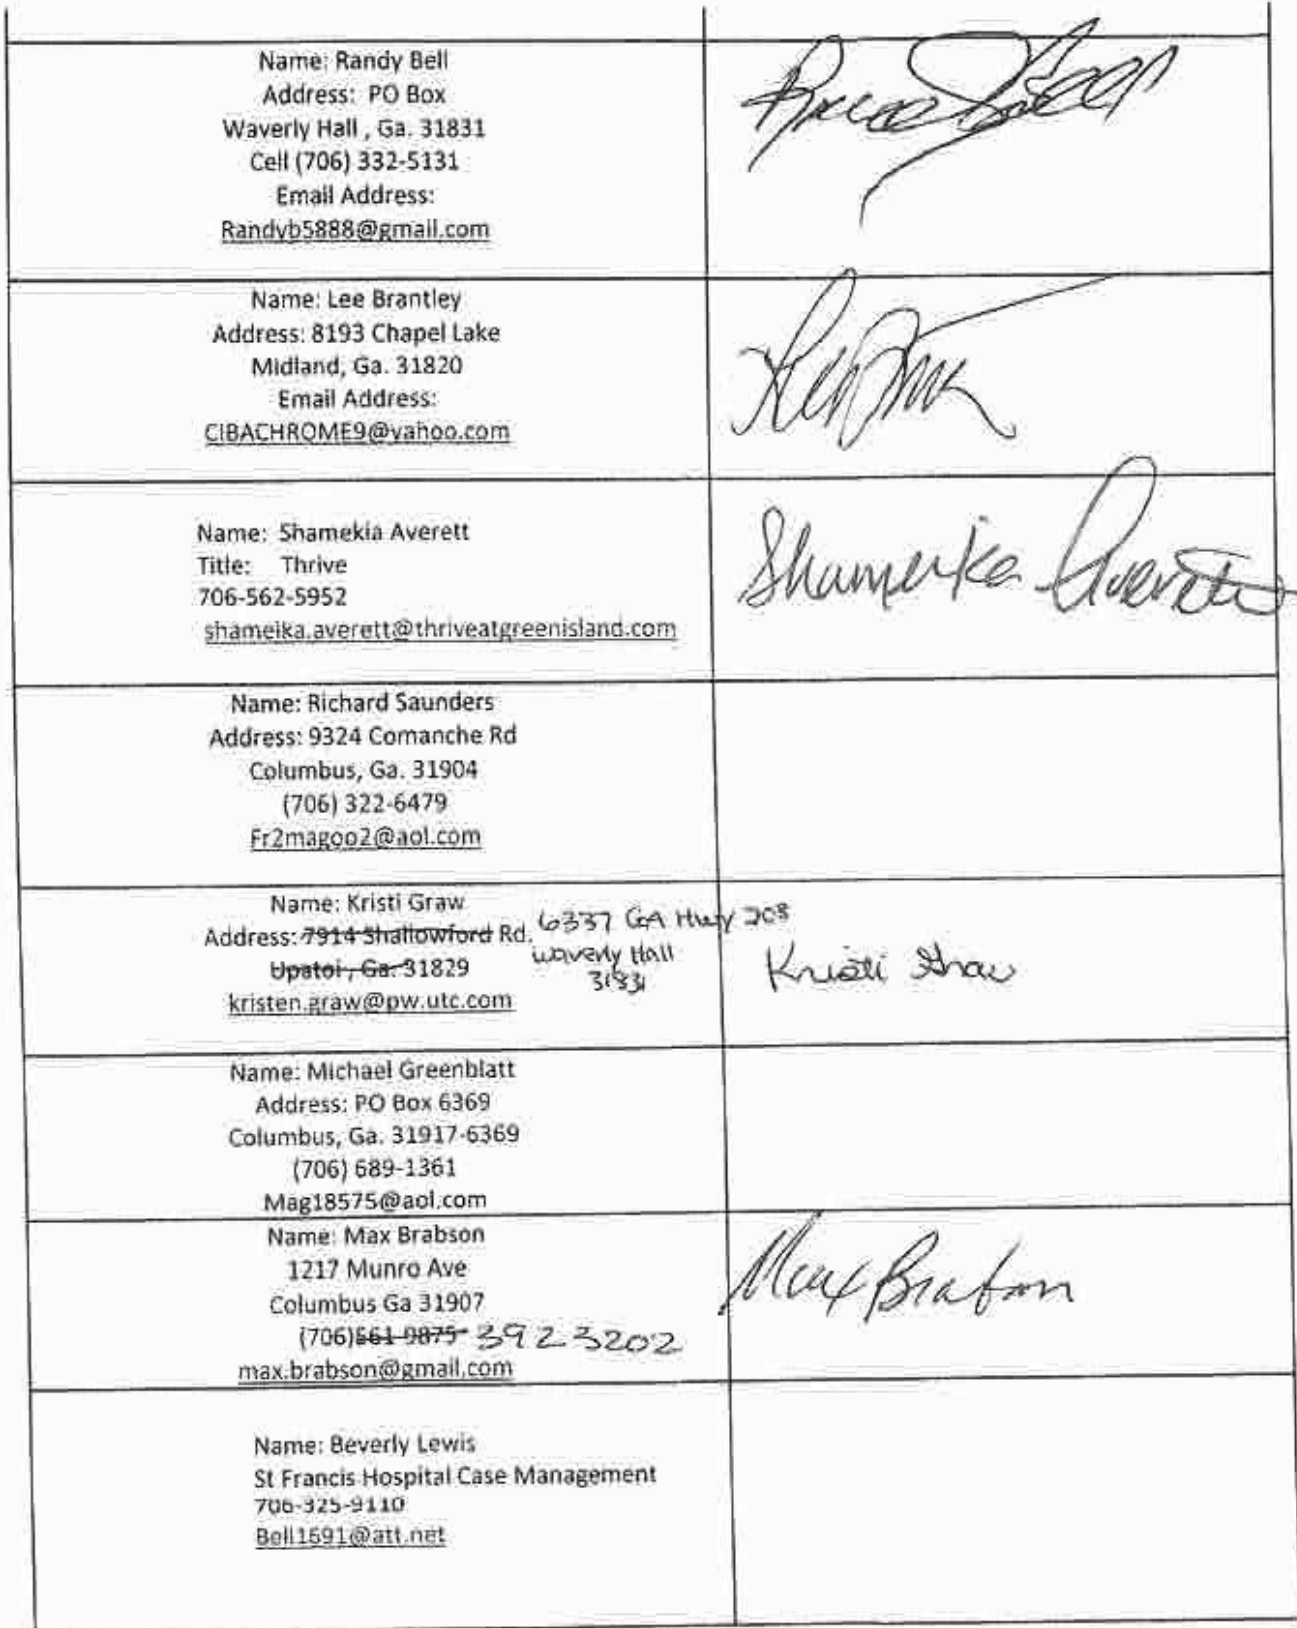 Name: Randy Bell
Address: PO Box
Waverly Hall , Ga. 31831
Cell (706) 332-5131
Email Address:
Randyb5888@gmail.com
Name: Lee Brantley
Address: 8193 Chapel Lake
Midland, Ga. 31820
Email Address:
CIBACHROME9@yahoo.com
Name: Shamekia Averett
Title: Thrive
706-562-5952
shameika.averett@thriveatgreenisland.com
Shameika Averett
Name: Richard Saunders
Address: 9324 Comanche Rd
Columbus, Ga. 31904
(706) 322-6479
Fr2magoo2@aol.com
Name: Kristi Graw
Address: 7914 Shallowford Rd. 6337 GA Hwy 208
Upatoi, Ga. 31829 Waverly Hall
31831
kristen.graw@pw.utc.com
Kristi Graw
Name: Michael Greenblatt
Address: PO Box 6369
Columbus, Ga. 31917-6369
(706) 689-1361
Mag18575@aol.com
Name: Max Brabson
1217 Munro Ave
Columbus Ga 31907
(706)561-9875 3923202
max.brabson@gmail.com
Max Brabson
Name: Beverly Lewis
St Francis Hospital Case Management
706-325-9110
Bell1691@att.net